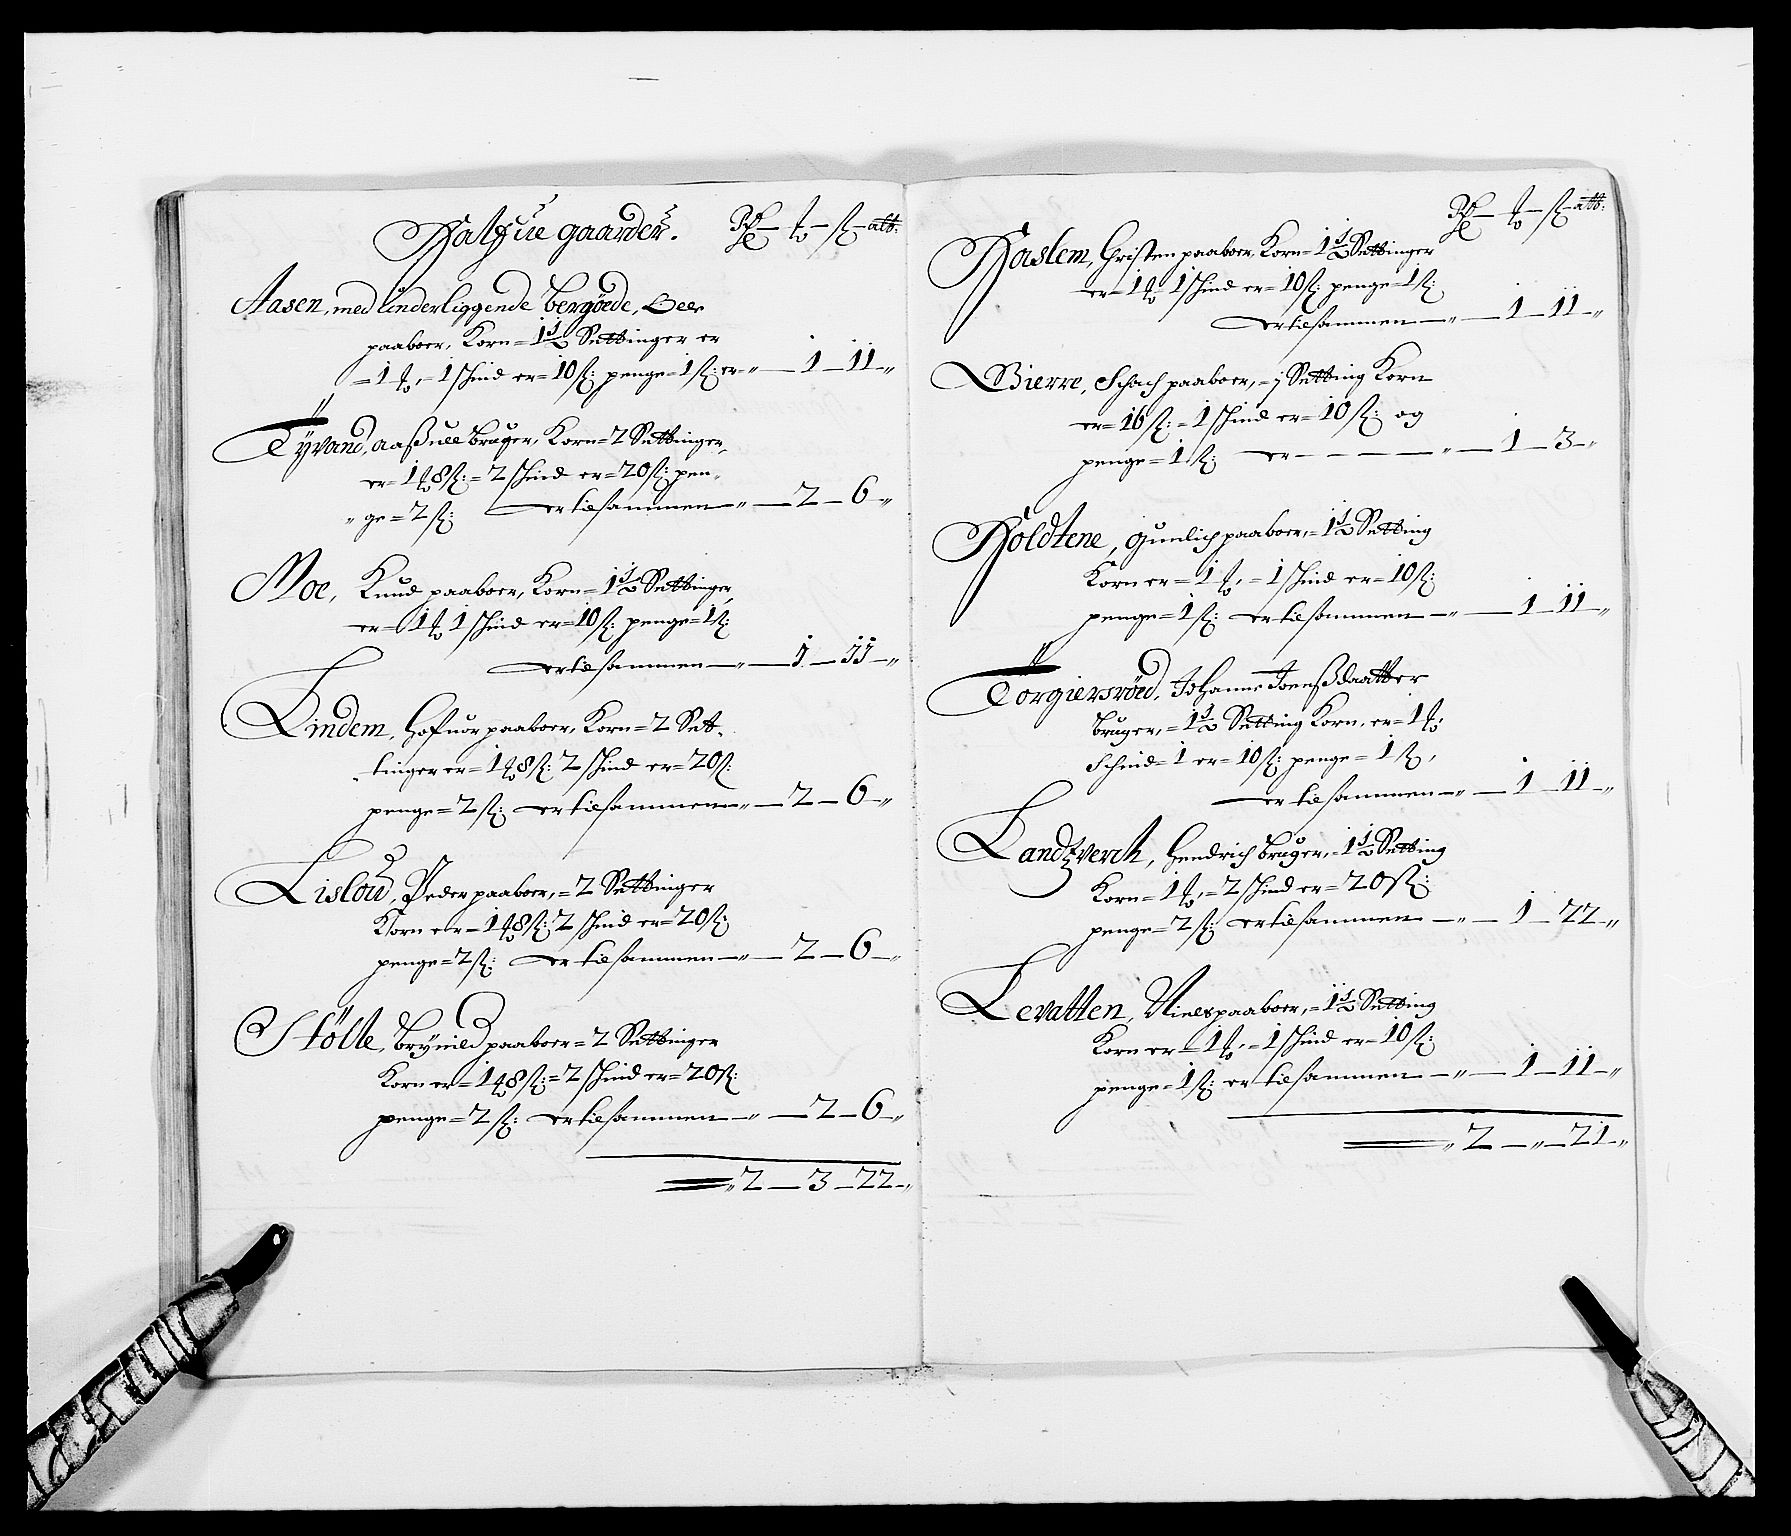 Halfue gaarder. Rdr — ß — alb:
Aasen, med underliggende bergöede, Oele
paaboer, Korn = 1½ Settinger er
= 1 — 1 schind er = 10 ß: penge = 1 ß: er „ — 1 — 11 — „
Tÿvand, Aaßuel bruger, Korn = 2 Settinger,
er = 1 8 ß: = 2 schind er = 20 ß: pen„
„ge = 2 ß: er tilsammen — „ — 2 — 6 — „
Moe, Knud paaboer, Korn = 1½ Settinger,
er = 1 1 schind er = 10 ß: penge = 1 ß:
er tilsammen — „ — 1 — 11 — „
Lindem, Hofuor paaboer, Korn = 2 Set„
tinger er = 1 8 ß: 2 schind er = 20 ß:
penge = 2 ß: er tilsammen „ — 2 — 6 — „
Lislou, Peder paaboer, = 2 Settinger
Korn er = 1 8 ß: 2 schind er = 20 ß:
penge = 2 ß: er tilsammen — „ — 2 — 6 — „
Stölte, Brÿnild paaboer = 2 Settinger
Korn er = 1 8 ß: = 2 schind er = 20 ß:
penge = 2 ß: er tilsammen — „ — 2 — 6 — „
„ 2 — 3 — 22 — „
Rdr — ß — alb:
Haslem, Christen paaboer, Korn = 1½ Settinger
er = 1 1 schind er = 10 ß: penge = 1 ß:
er tilsammen — „ — 1 — 11 — „
Bierre, Schach paaboer, = 1 Setting Korn
er = 16 ß: = 1 schind er = 10 ß: og
penge = 1 ß: er — — — — „ — 1 — 3 — „
Holdtene, Gunlich paaboer, = 1½ Setting
Korn er = 1 = 1 schind er = 10 ß:
penge = 1 ß: er tilsammen — „ — 1 — 11 — „
Torgiersröed, Johanne Joenßdaatter
bruger, = 1½ Setting Korn, er = 1
Schind = 1 er = 10 ß: penge = 1 ß,
er tilsammen — „ — 1 — 11 — „
Landtzverch, Hendrich bruger, = 1½ Setting
Korn = 1 = 2 schind er = 20 ß:
penge = 2 ß: er tilsammen — „ — 1 — 22 — „
Levatten, Niels paaboer, = 1½ Setting
Korn er = 1 = 1 schind er = 10 ß:
penge = 1 ß: er tilsammen — „ — 1 — 11 — „
„ 2 — „ — 21 — „